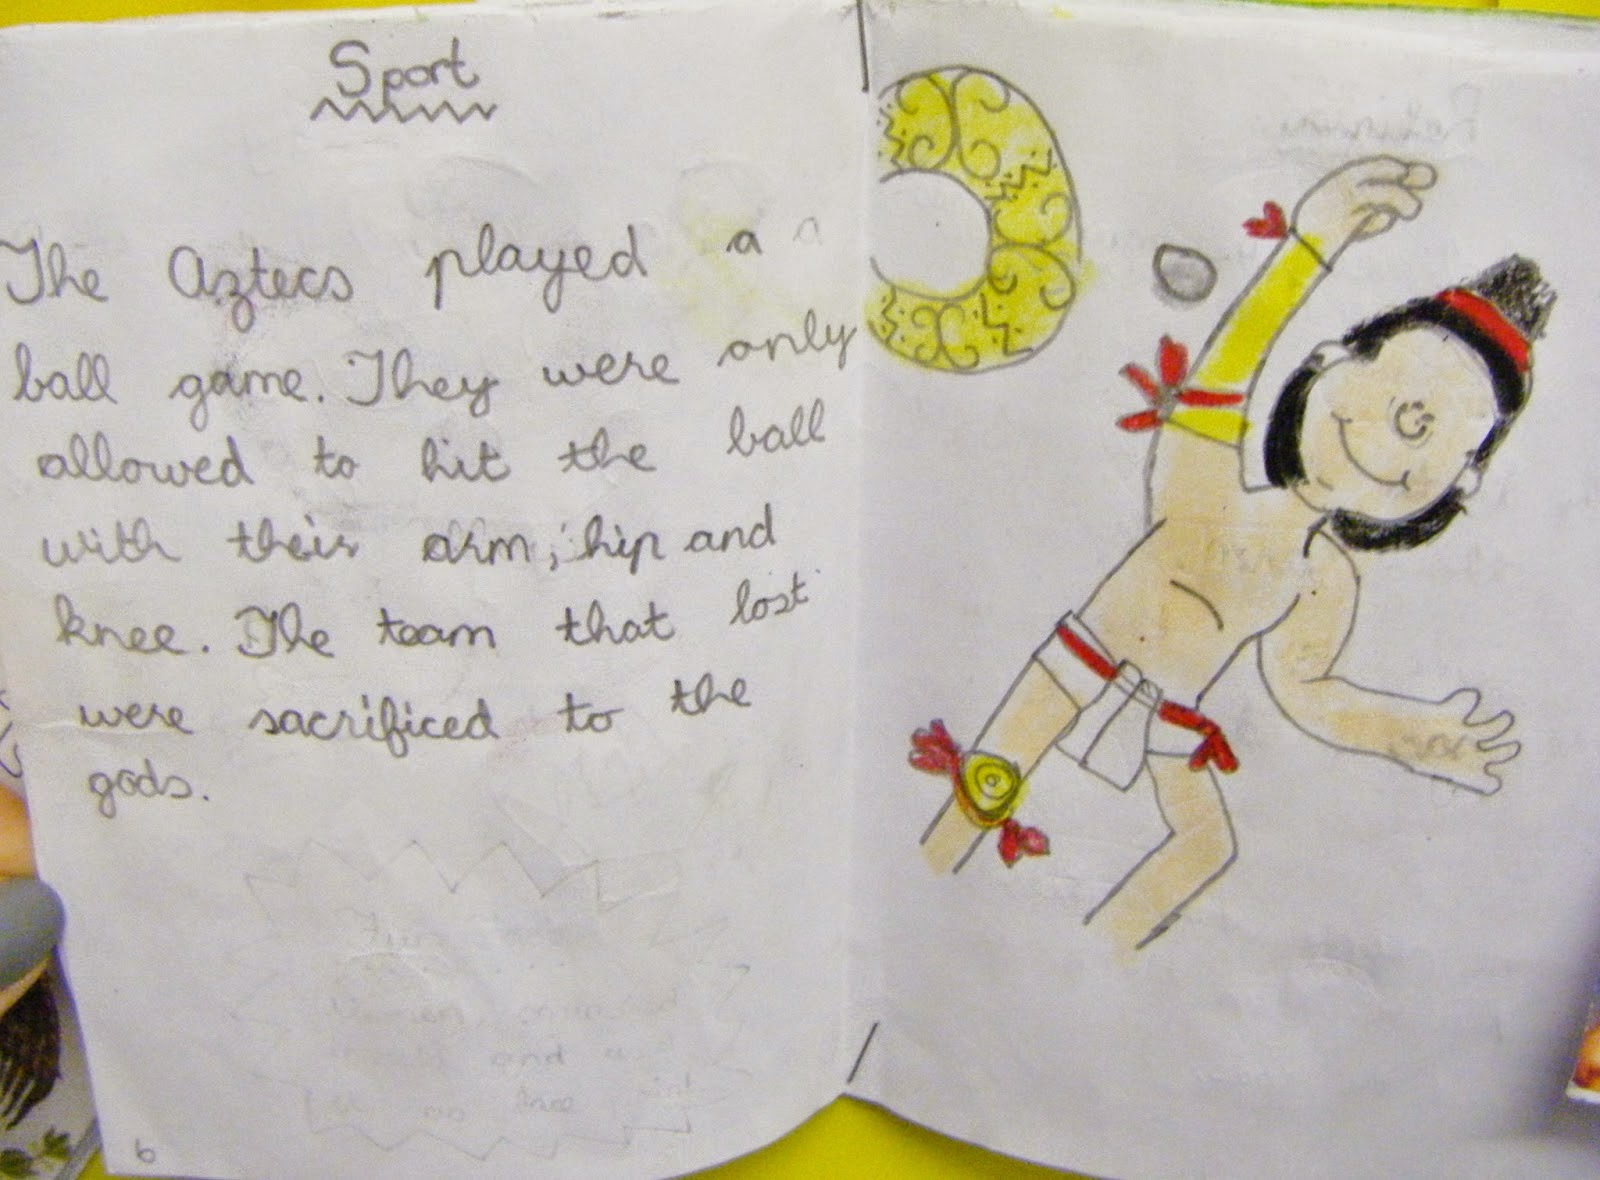 Sport
The Aztecs played a a
ball game. They were only
allowed to hit the ball
with their arm, hip and
knee. The team that lost
were sacrificed to the
gods.
and
knee
6